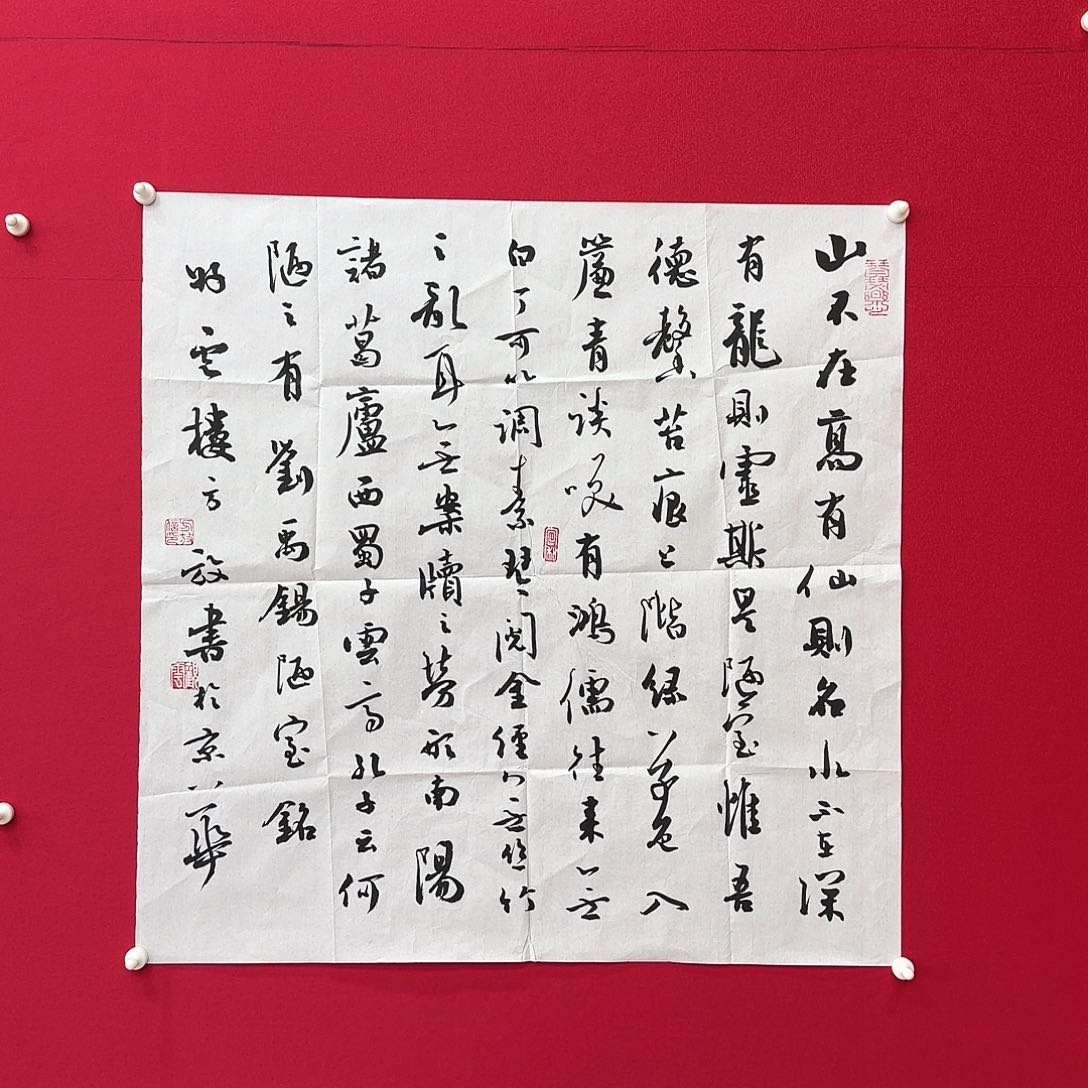 山不在高有仙則名水不在深
有龍則靈斯是陋室惟吾
德馨苔痕上階緑草色入
簾青談咲有鴻儒往来無
白丁可以調素琴閲金經無丝竹
之亂耳無案牘之勞形南陽
諸葛廬西蜀子雲亭孔子云何
陋之有劉禹錫陋室銘
雲樓方放書於京華